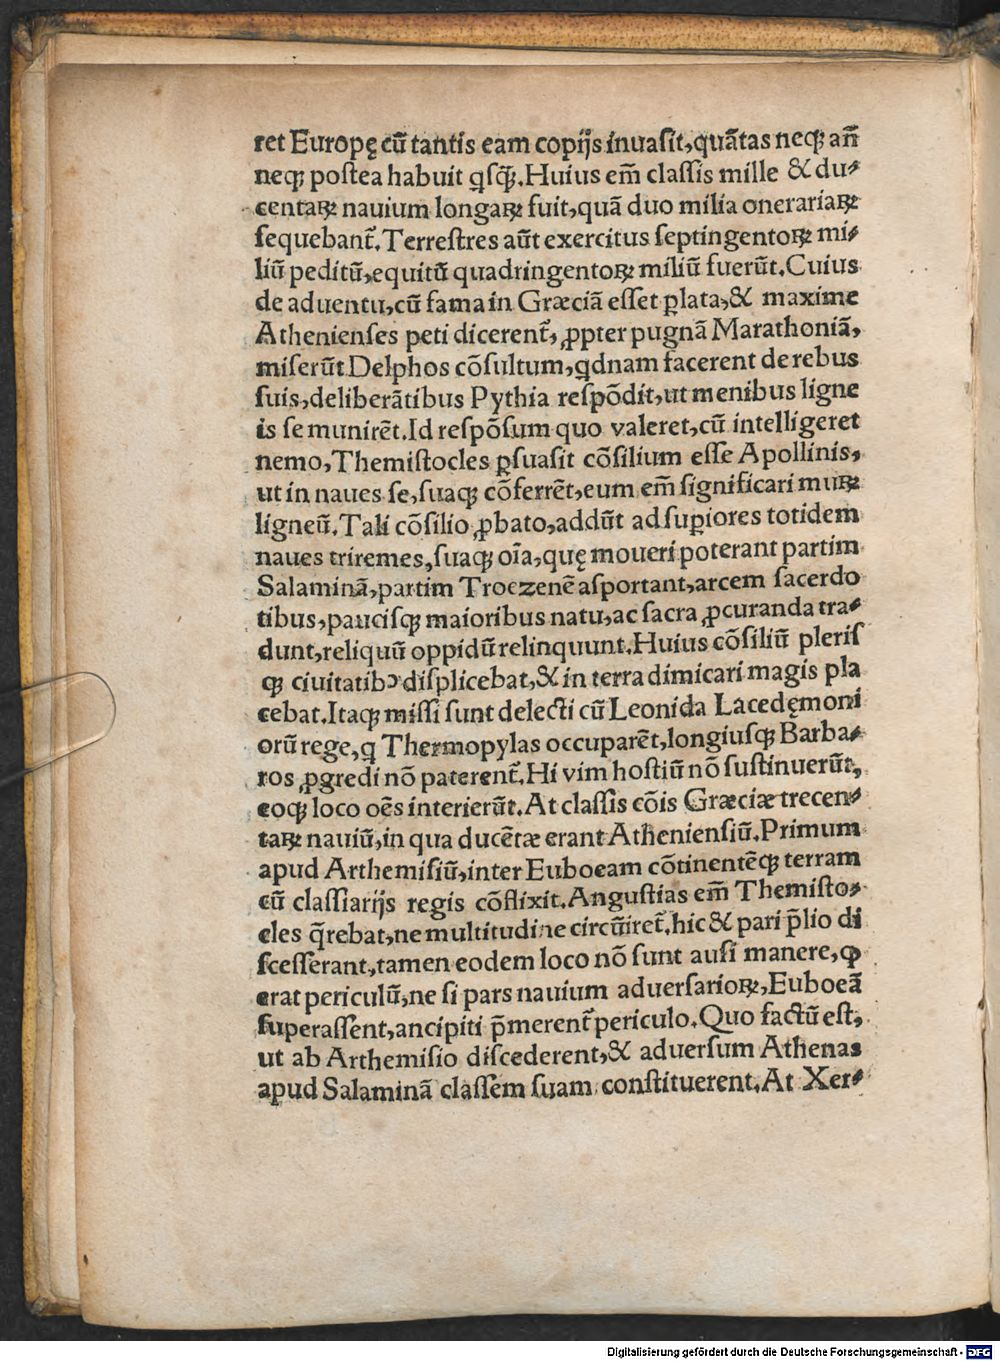 ret Europę cū tantis eam copijs inuaſit,quātas neqꝫ an̄
neqꝫ poſtea habuit qſqͣ̄.Huius em̄ claſſis mille & du⸗
centaꝝ nauium longaꝝ fuit,quā duo milia onerariaꝝ
ſequebant̄.Terreſtres aūt exercitus ſeptingentoꝝ mi⸗
liū peditū,equitū quadringentoꝝ miliū fuerūt.Cuius
de aduentu,cū fama in Græciā eſſet ꝑlata,& maxime
Athenienſes peti dicerent̄,ꝓpter pugnā Marathoniā,
miſerūt Delphos cōſultum,qdnam facerent de rebus
ſuis,deliberātibus Pythia reſpōdit,ut menibus ligne
is ſe munirēt.Id reſpōſum quo valeret,cū intelligeret
nemo,Themiſtocles ꝑſuaſit cōſilium eſſe Apollinis,
ut in naues ſe,ſuaqꝫ cōferrēt,eum em̄ ſignificari muꝝ
ligneū.Tali cōſilio ꝓbato,addūt ad ſuꝑiores totidem
naues triremes,ſuaqꝫ oīa,quę moueri poterant partim
Salaminā,partim Troezenē aſportant,arcem ſacerdo
tibus,pauciſqꝫ maioribus natu,ac ſacra ꝓcuranda tra⸗
dunt,reliquū oppidū relinquunt.Huius cōſiliū pleriſ
qꝫ ciuitatibꝰ diſplicebat,& in terra dimicari magis pla
cebat.Itaqꝫ miſſi ſunt delecti cū Leonida Lacedęmoni
orū rege,q Thermopylas occuparēt,longiuſqꝫ Barba⸗
ros ꝓgredi nō paterent̄.Hi vim hoſtiū nō ſuſtinuerūt,
eoqꝫ loco oēs interierūt.At claſſis cōis Græciæ trecen⸗
taꝝ nauiū,in qua ducētæ erant Athenienſiū.Primum
apud Arthemiſiū,inter Euboeam cōtinentēqꝫ terram
cū claſſiarijs regis cōflixit.Anguſtias em̄ Themiſto⸗
cles q̄rebat,ne multitudine circūiret̄.hic & pari p̄lio di
ſceſſerant,tamen eodem loco nō ſunt auſi manere,ꝙ
erat periculū,ne ſi pars nauium aduerſarioꝝ,Euboeā
ſuperaſſent,ancipiti p̄merent̄ periculo.Quo factū eſt,
ut ab Arthemiſio diſcederent,& aduerſum Athenas
apud Salaminā claſſem ſuam conſtituerent.At Xer⸗
Digitalisierung gefördert durch die Deutsche Forschungsgemeinschaft - DFG